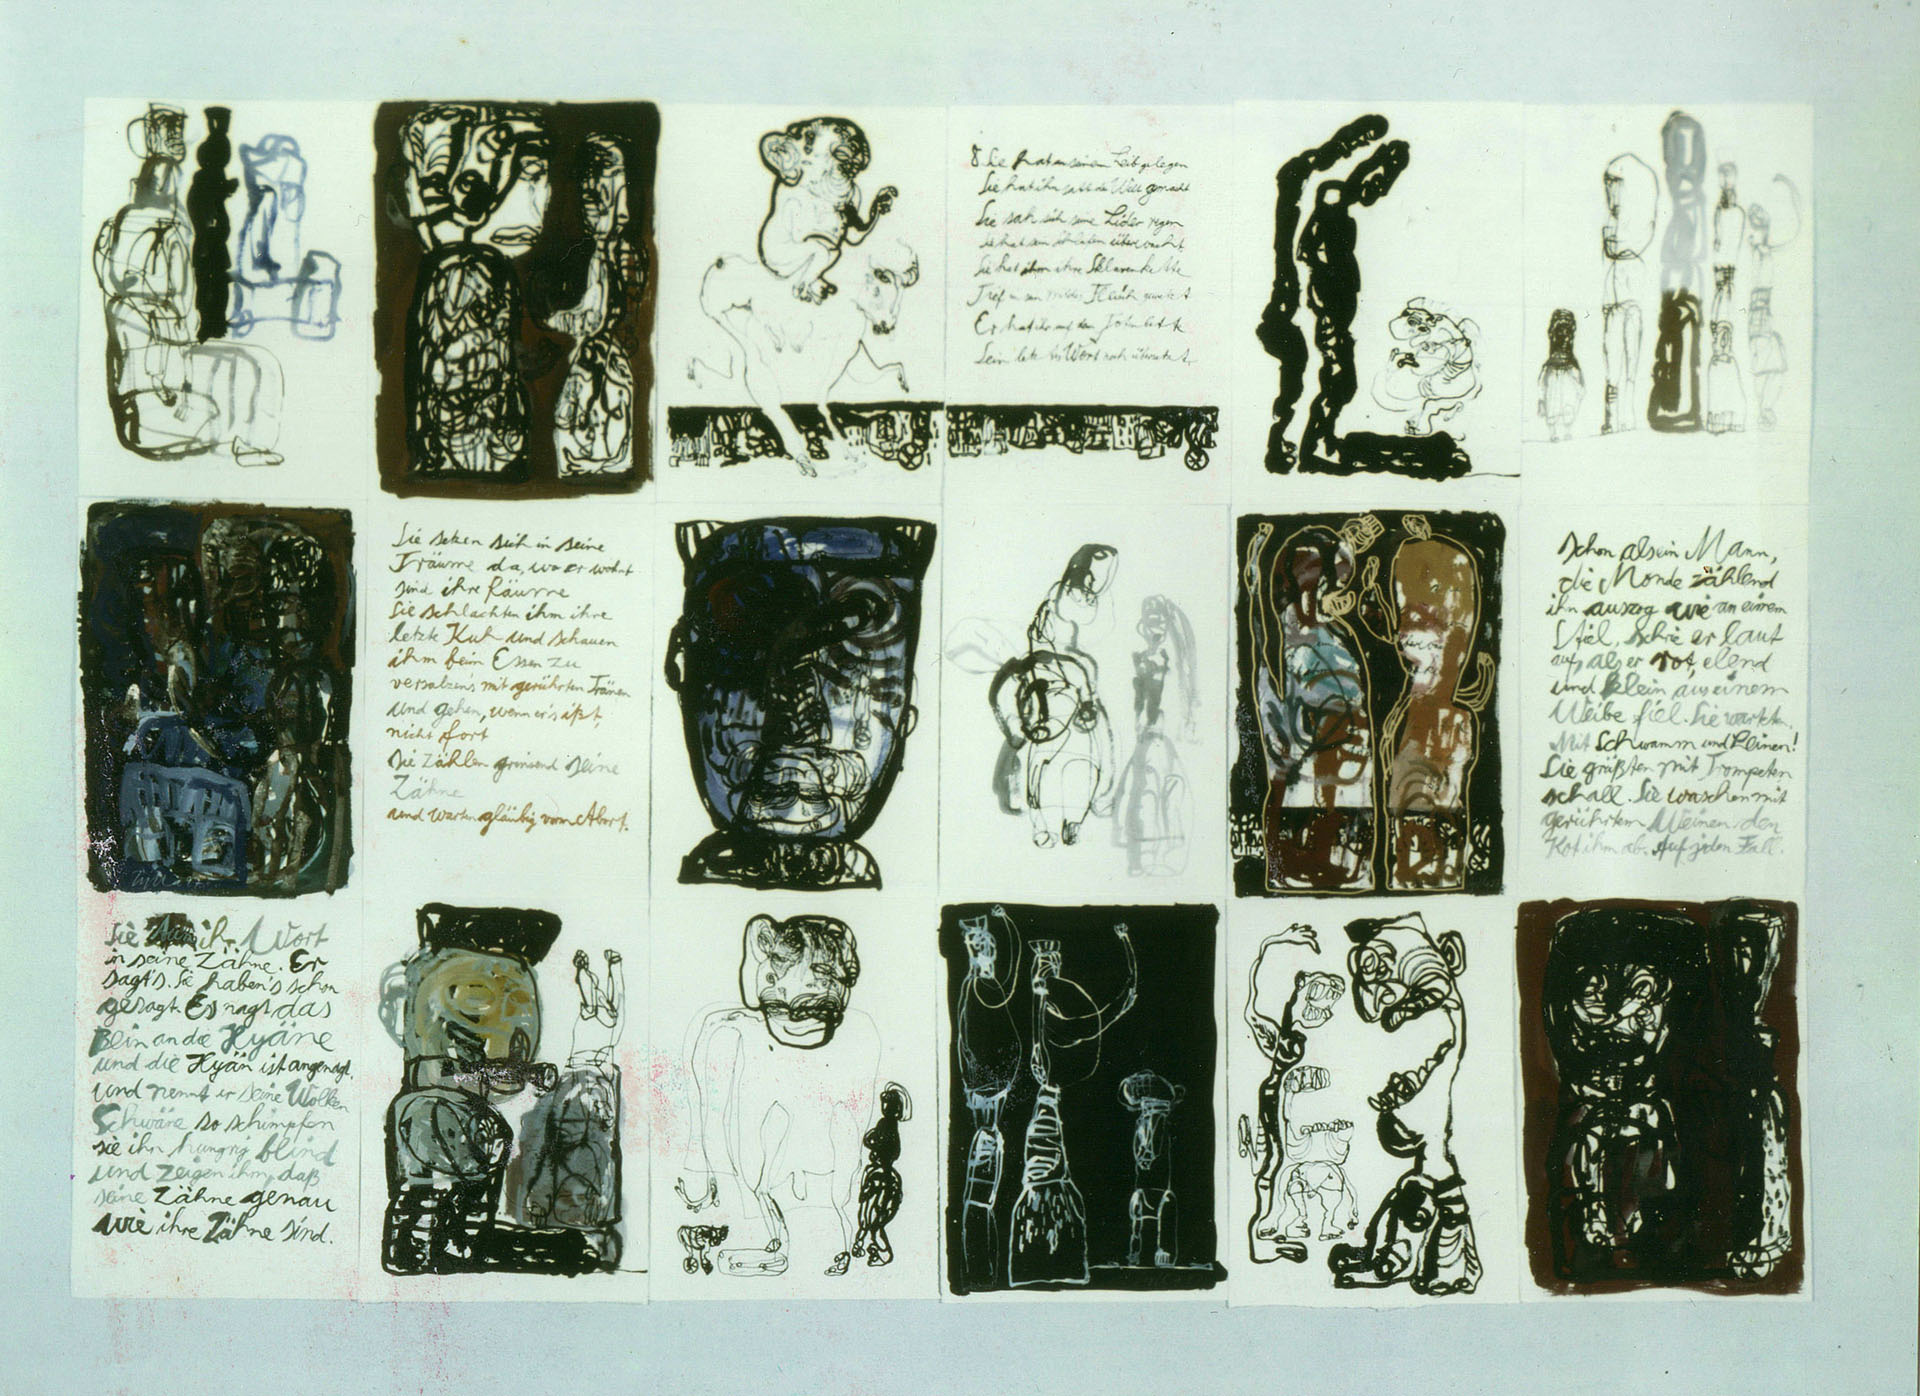 Sie hat an seinem Leib gelegen
Sie hat ihn satt die Welt gemacht
Sie sah sich seine Lider regen
sie hat sein Schlafen überwacht
Sie hat ihm ihre Sklavenkette
Tief in sein Fleisch
Er hat ihr auf dem
Sein letztes Wort noch übersetzt
Sie setzen sich in seine
Träume da, wo er wohnt
sind ihre Räume
Sie schlachten ihm ihre
letzte Kuh und schauen
ihm beim Essen zu
versalzen's mit gerührten Tränen
und gehen, wenn er's ißt,
nicht fort
Sie zählen grinsend seine
Zähne
und warten gläubig vorm Abort.
Schon als ein Mann,
die Monde zählend
ihn auszog wie an einem
Stiel. Schrie er laut
auf, als er rot, elend
und klein aus einem
Weibe fiel. Sie warteten.
Mit Schwamm und Leinen!
Sie grüßten mit Trompeten
schall. Sie waschen mit
gerührtem Weinen den
Kot ihm ab. Auf jeden Fall.
Sie ihr Wort
in seine Zähne. Er
sagt's. Sie haben's schon
gesagt. Es nagt das
Bein an die Hyäne
und die Hyän ist angenagt.
und nennt er seine Wolken
Schwäne so schimpfen
sie ihn hungrig blind
und zeigen ihm, daß
seine Zähne genau
wie ihre Zähne sind.